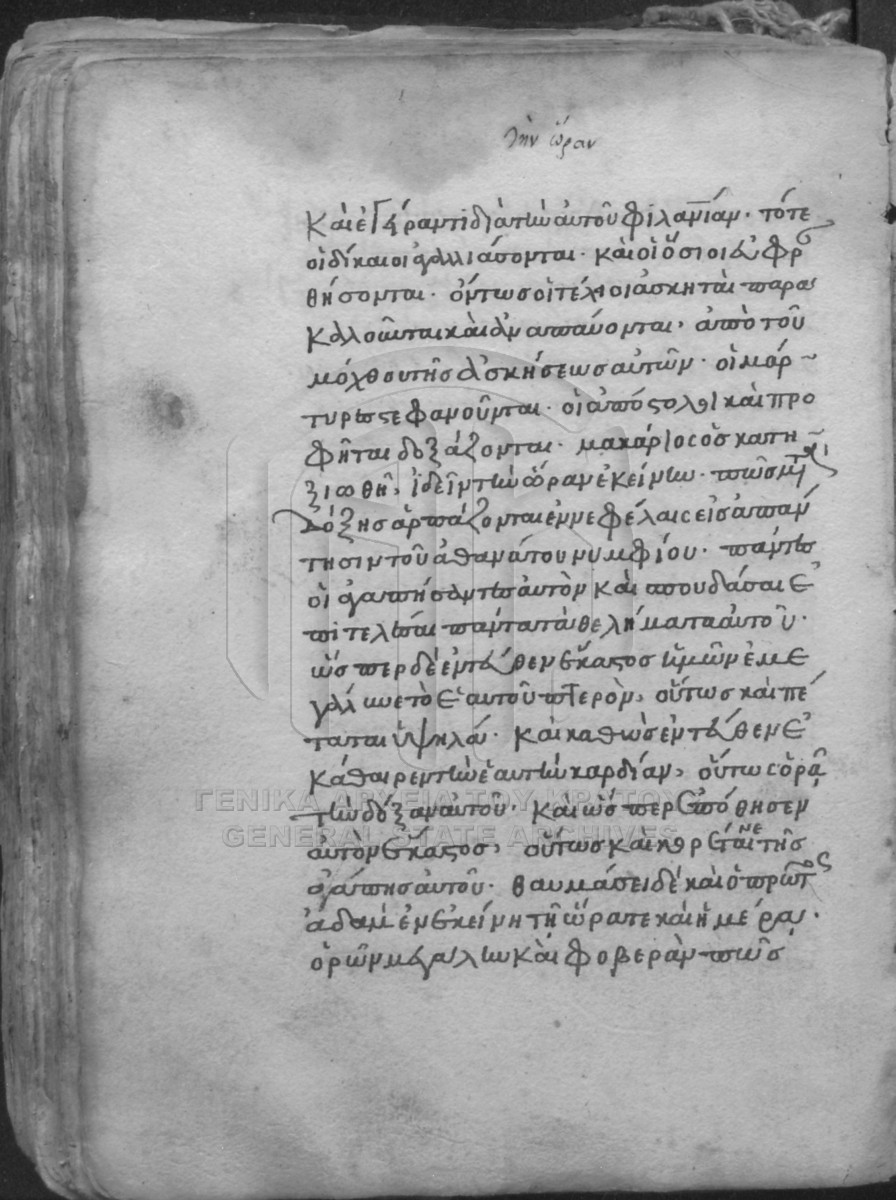 τὴν ὥραν
καὶ ἐξέραντι διὰ τὴν αὐτοῦ φιλανίαν · τότε
οἱ δίκαιοι ἀγαλλιάσονται · καὶ οἱ ὅσιοι εὐφρ
θήσονται · ὄντως οἱ τέλιοι ἀσκηταὶ παρα
καλοῦνται καὶ ἀναπαύονται, ἀπὸ τοῦ
μόχθου τῆς ἀσκήσεως αὐτῶν · οἱ μάρ
τυρες στεφανοῦνται · οἱ ἀπόστολοι καὶ προ
φῆται δοξάζονται · μακάριος ὃς κατη
ξιώθη, ἰδεῖν τὴν ὥραν ἐκείνην · πῶς μετὰ
δόξης ἁρπάζονται ἐν νεφέλαις εἰς ἀπάν
τησιν τοῦ ἀθανάτου νυμφίου · πάντες
οἱ ἀγαπήσαντες αὐτὸν καὶ σπουδάσαι ἐ
πιτελέσαι πάντα τὰ θελήματα αὐτοῦ ·
ὥσπερ δὲ ἐντεῦθεν ἕκαστος ἡμῶν ἐμε
γάλυνε τὸ ἑαυτοῦ πτερὸν, οὕτως καὶ πέ
ταται ὑψηλά · καὶ καθὼς ἐντεῦθεν ἐ
κάθαιρεν τὴν ἑαυτὴν καρδίαν, οὕτως ὁρᾶ
τὴν δόξαν αὐτοῦ · καὶ ὥσπερ ἐπόθησεν
αὐτὸν ἕκαστος, οὕτως καὶ τῆς
ἀγάπης αὐτοῦ · θαυμάσει δὲ καὶ ὁ πρῶτος
ἀδαμ ἐν ἐκείνη τῆ ὥρα τε καὶ ἡμέρα ·
ὁρῶν μεγάλην καὶ φοβερὰν πῶς
ΓΕΝΙΚΑ ΑΡΧΕΙΑ ΤΟΥ ΚΡΑΤΟΥΣ
GENERAL STATE ARCHIVES